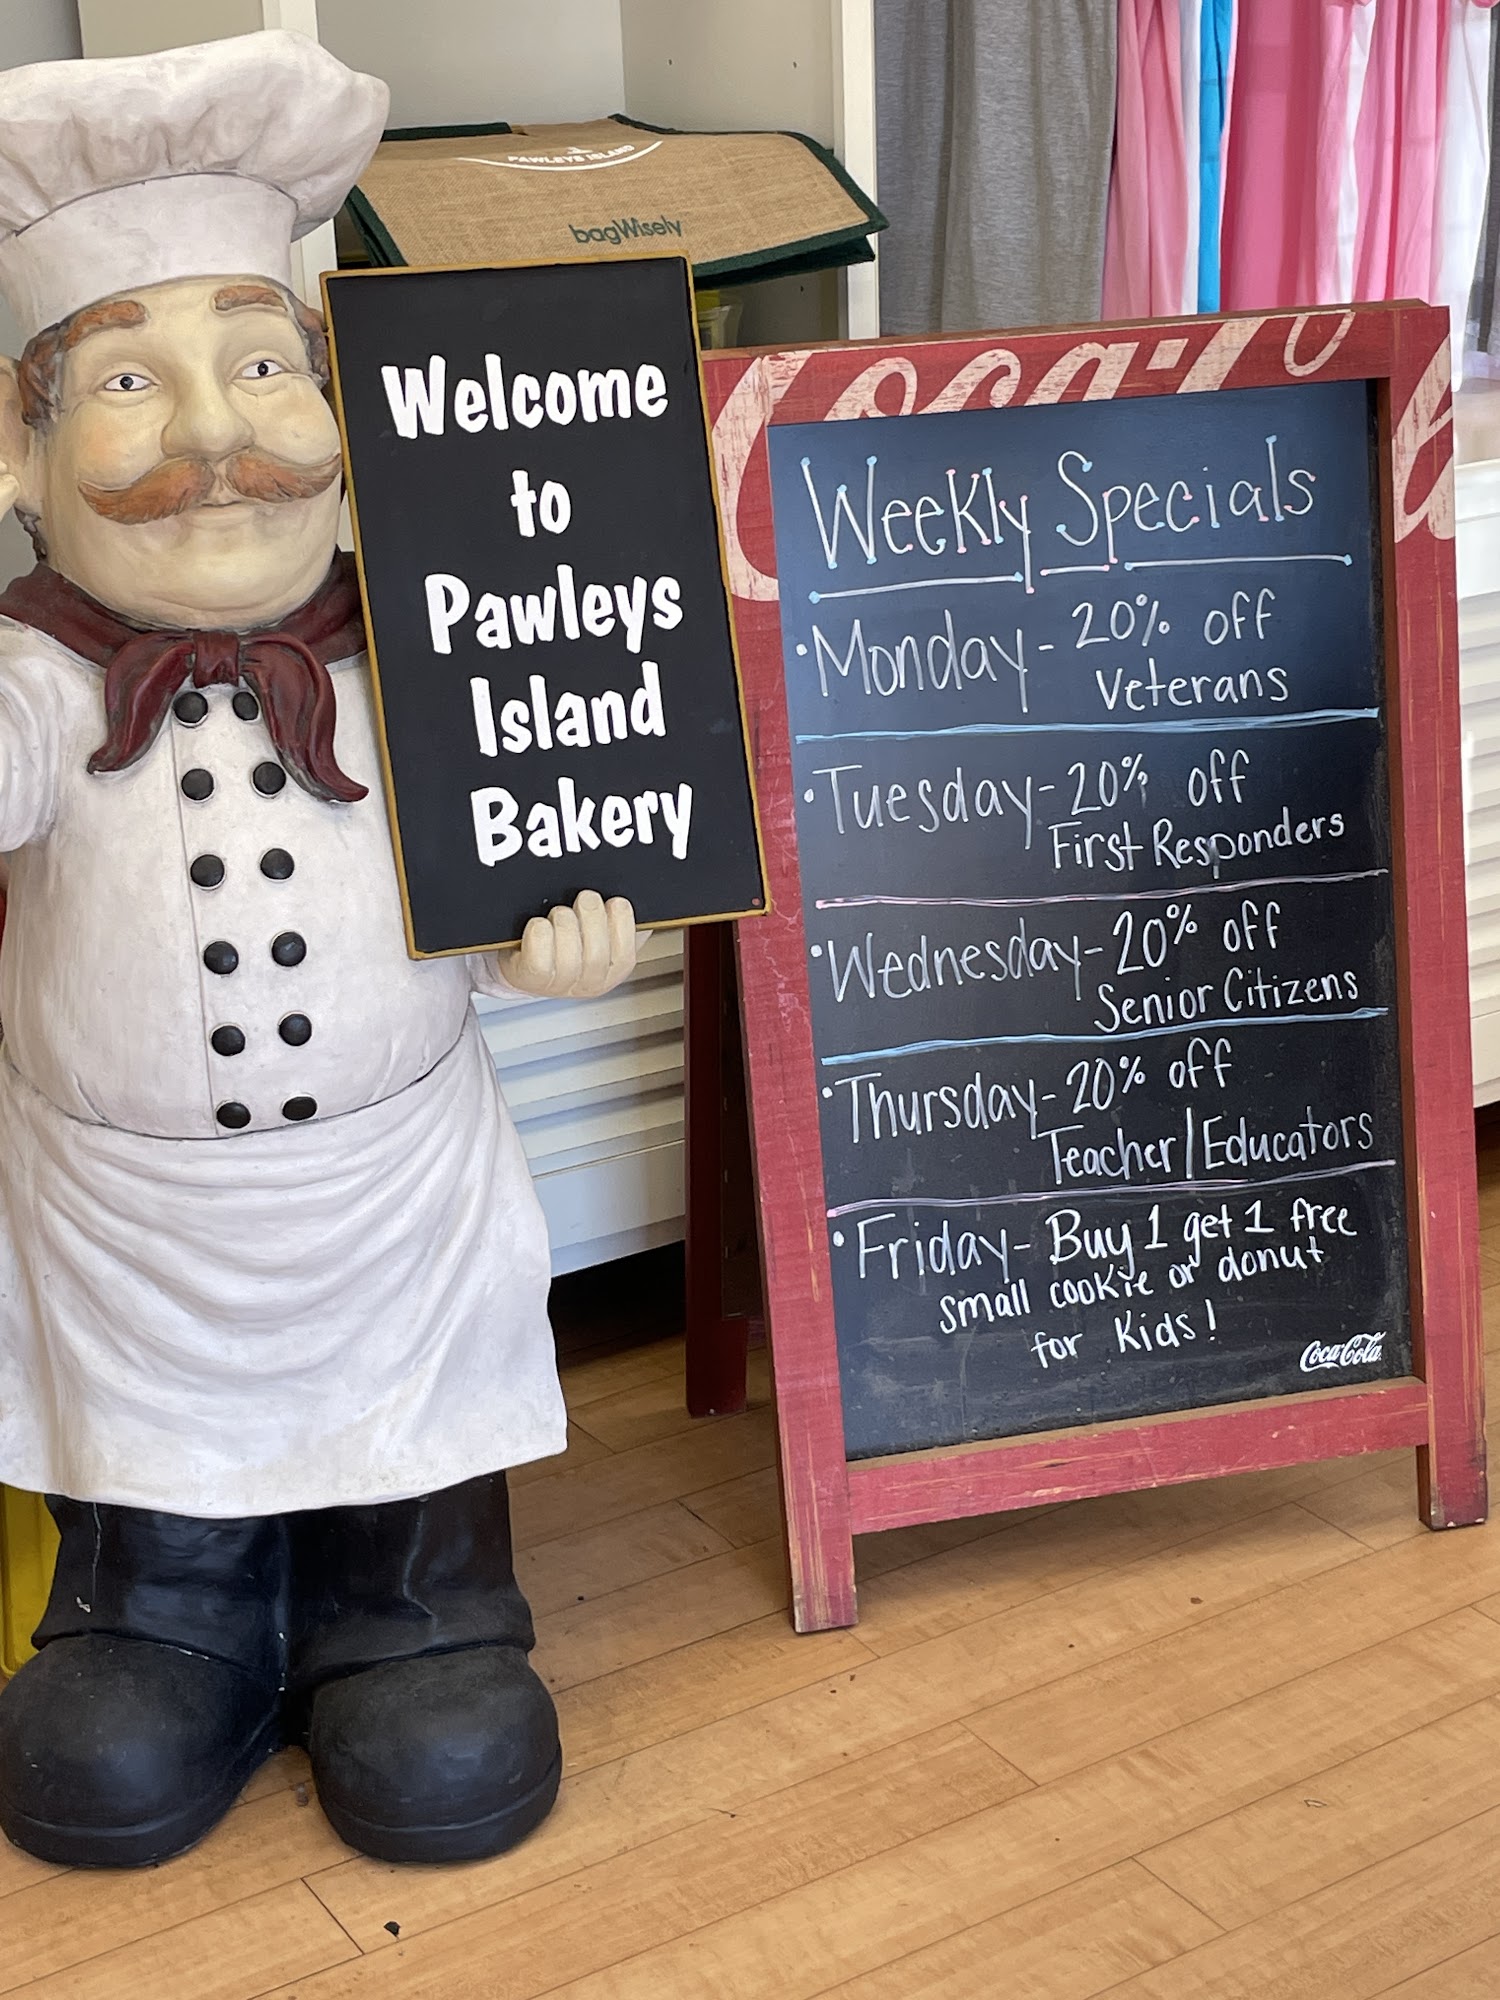 PAWLEYS ISLAND
bagWisely
Welcome
to
Pawleys
Island
Bakery
Coca-Co
Weekly Specials
• Monday - 20% off
Veterans
• Tuesday - 20% off
First Responders
• Wednesday - 20% off
Senior Citizens
• Thursday - 20% off
Teacher/Educators
• Friday - Buy 1 get 1 free
small cookie or donut
for kids!
Coca-Cola